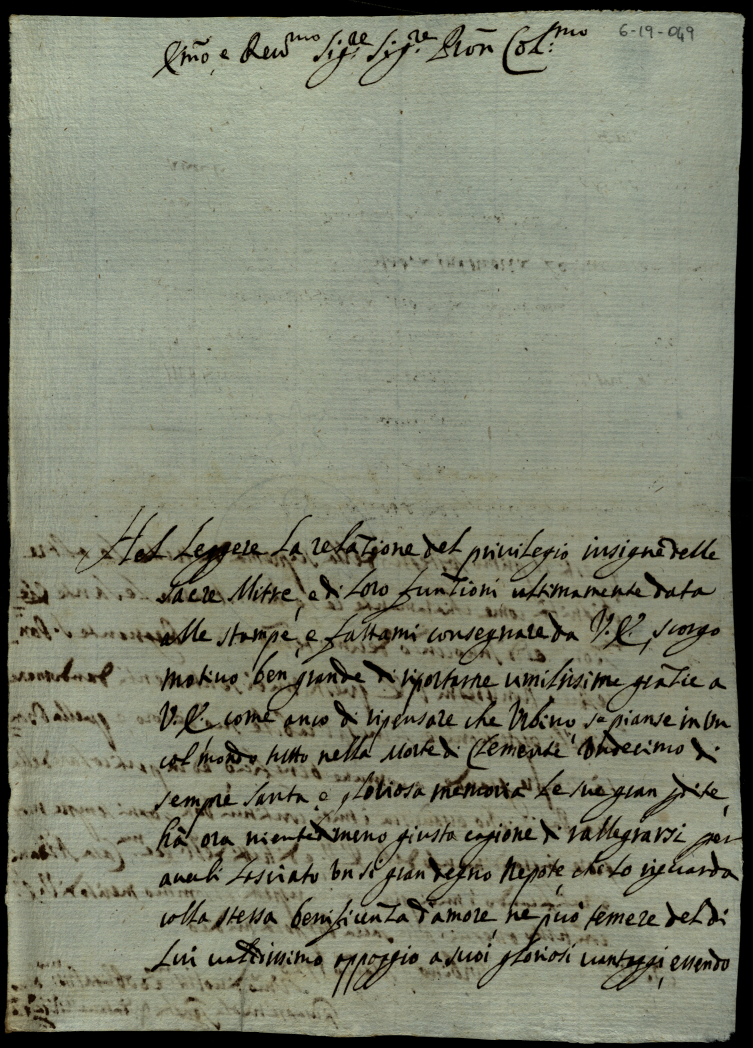 6-19-049
Em̃o e Reu.mo Sig.re Sig.re Pron̄ Col:mo
Nel leggere la relatione del privilegio insigne delle
sacre Mitre, e di loro funtioni ultimamente data
alle stampe, e fattami consegnare da V.E., scorgo
motivo ben grande di riportarne umilissime gratie a
V.E. come anco di ripensare che Urbino se pianse in un
col mondo tutto nella Morte di Clemente Undecimo di
sempre santa e gloriosa memoria le sue gran p̄dite,
hà ora nientedimeno giusta cagione di rallegrarsi per
averli lasciato un si gran degno Nepote, che lo riguarda
colla stessa benificenza d'amore, ne può temere del di
lui validissimo appoggio a suoi gloriosi vantaggi, essendo